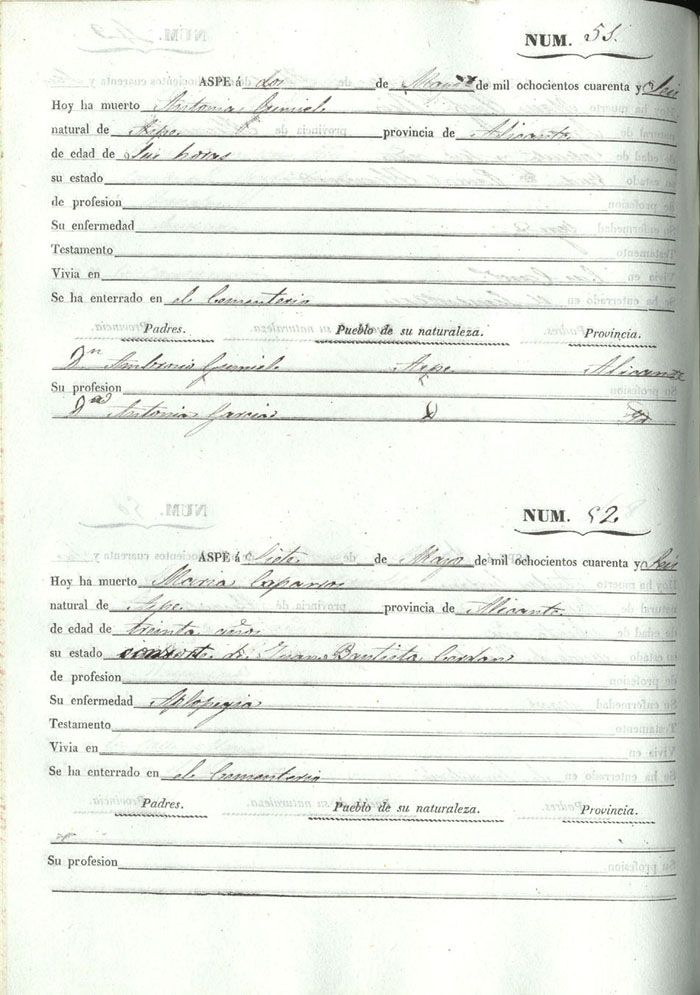 NUM. 51.
ASPE á dos de Mayo de mil ochocientos cuarenta y Seis
Hoy ha muerto Antonia
natural de Aspe provincia de Alicante
de edad de Seis horas
su estado
de profesion
Su enfermedad
Testamento
Vivia en
Se ha enterrado en el Cementerio
Padres. Pueblo de su naturaleza. Provincia.
Dn Ambrosio Aspe Alicante
Su profesion
Da Antonia Garcia
NUM. 52
ASPE á Siete de Mayo de mil ochocientos cuarenta y Seis
Hoy ha muerto Maria Caparros
natural de Aspe provincia de Alicante
de edad de treinta años
su estado consorte de Juan Bautista
de profesion
Su enfermedad Aplopegia
Testamento
Vivia en
Se ha enterrado en el Cementerio
Padres. Pueblo de su naturaleza. Provincia.
Su profesion